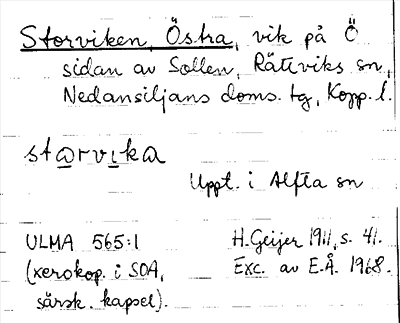 Storviken, Östra, vik på Ö
sidan av Sollen, Rättviks sn,
Nedansiljans doms. tg, Kopp. l.
starvika
Uppt. i Alfta sn
ULMA 565:1
(xerokop. i SOA,
särsk. kapsel).
H. Geijer 1911, s. 41.
Exc. av E.Å. 1968.